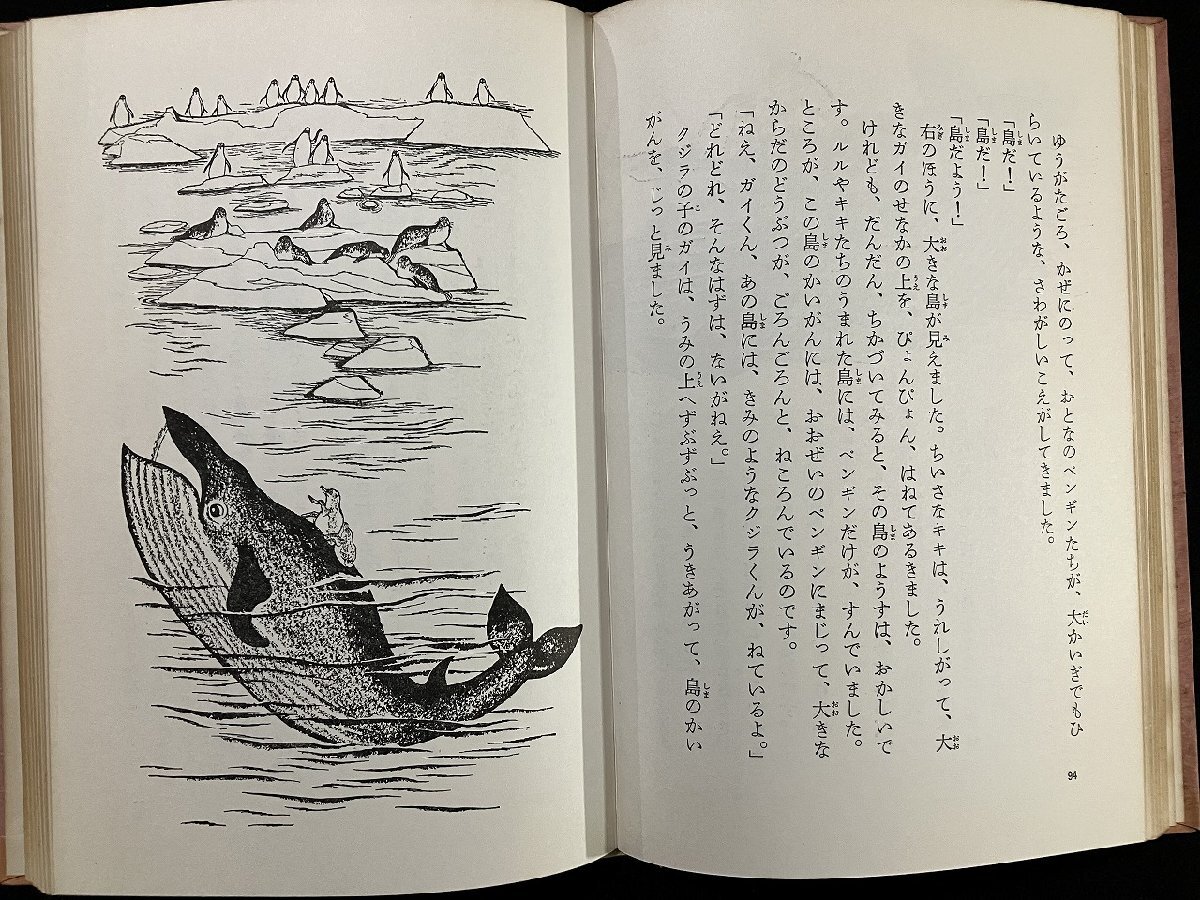 ゆうがたごろ、かぜにのって、おとなのペンギンたちが、大かいぎでもひ
らいているような、さわがしいこえがしてきました。
「島だ！」
「島だ！」
「島だよう！」
右のほうに、大きな島が見えました。ちいさなキキは、うれしがって、大
きなガイのせなかの上を、ぴょんぴょん、はねてあるきました。
けれども、だんだん、ちかづいてみると、その島のようすは、おかしいで
す。ルルやキキたちのうまれた島には、ペンギンだけが、すんでいました。
ところが、この島のかいがんには、おおぜいのペンギンにまじって、大きな
からだのどうぶつが、ごろんごろんと、ねころんでいるのです。
「ねえ、ガイくん、あの島には、きみのようなクジラくんが、ねているよ。」
「どれどれ、そんなはずは、ないがねえ。」
クジラの子のガイは、うみの上へずぶずぶっと、うきあがって、島のかい
がんを、じっと見ました。
94